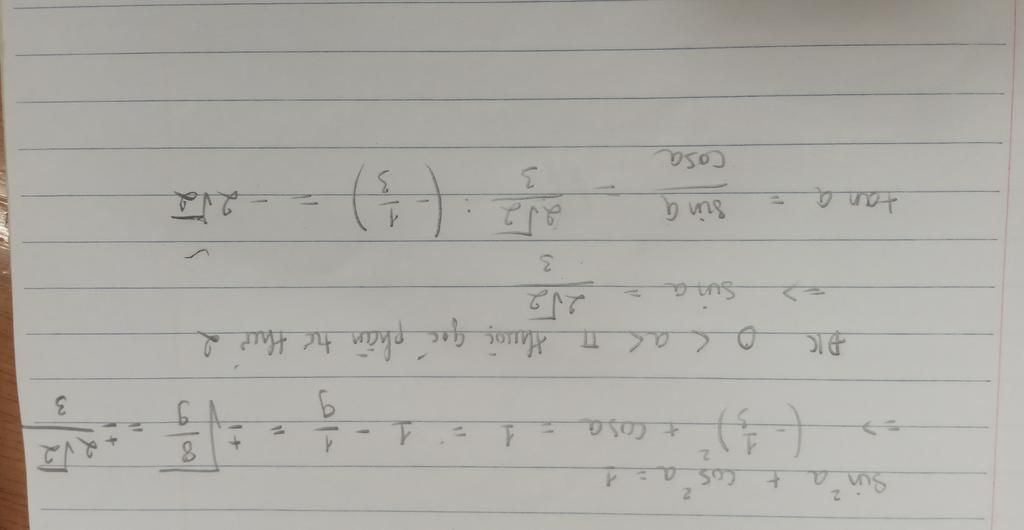 sin² a + cos² a = 1
=> (-1/3)² + cos a = 1 = 1 - 1/9 = ±√(8/9) = ± 2√2/3
ĐK 0 < a < π thuộc góc phần tư thứ 2
=> sin a = 2√2/3
tan a = sin a/cos a = 2√2/3 : (-1/3) = -2√2